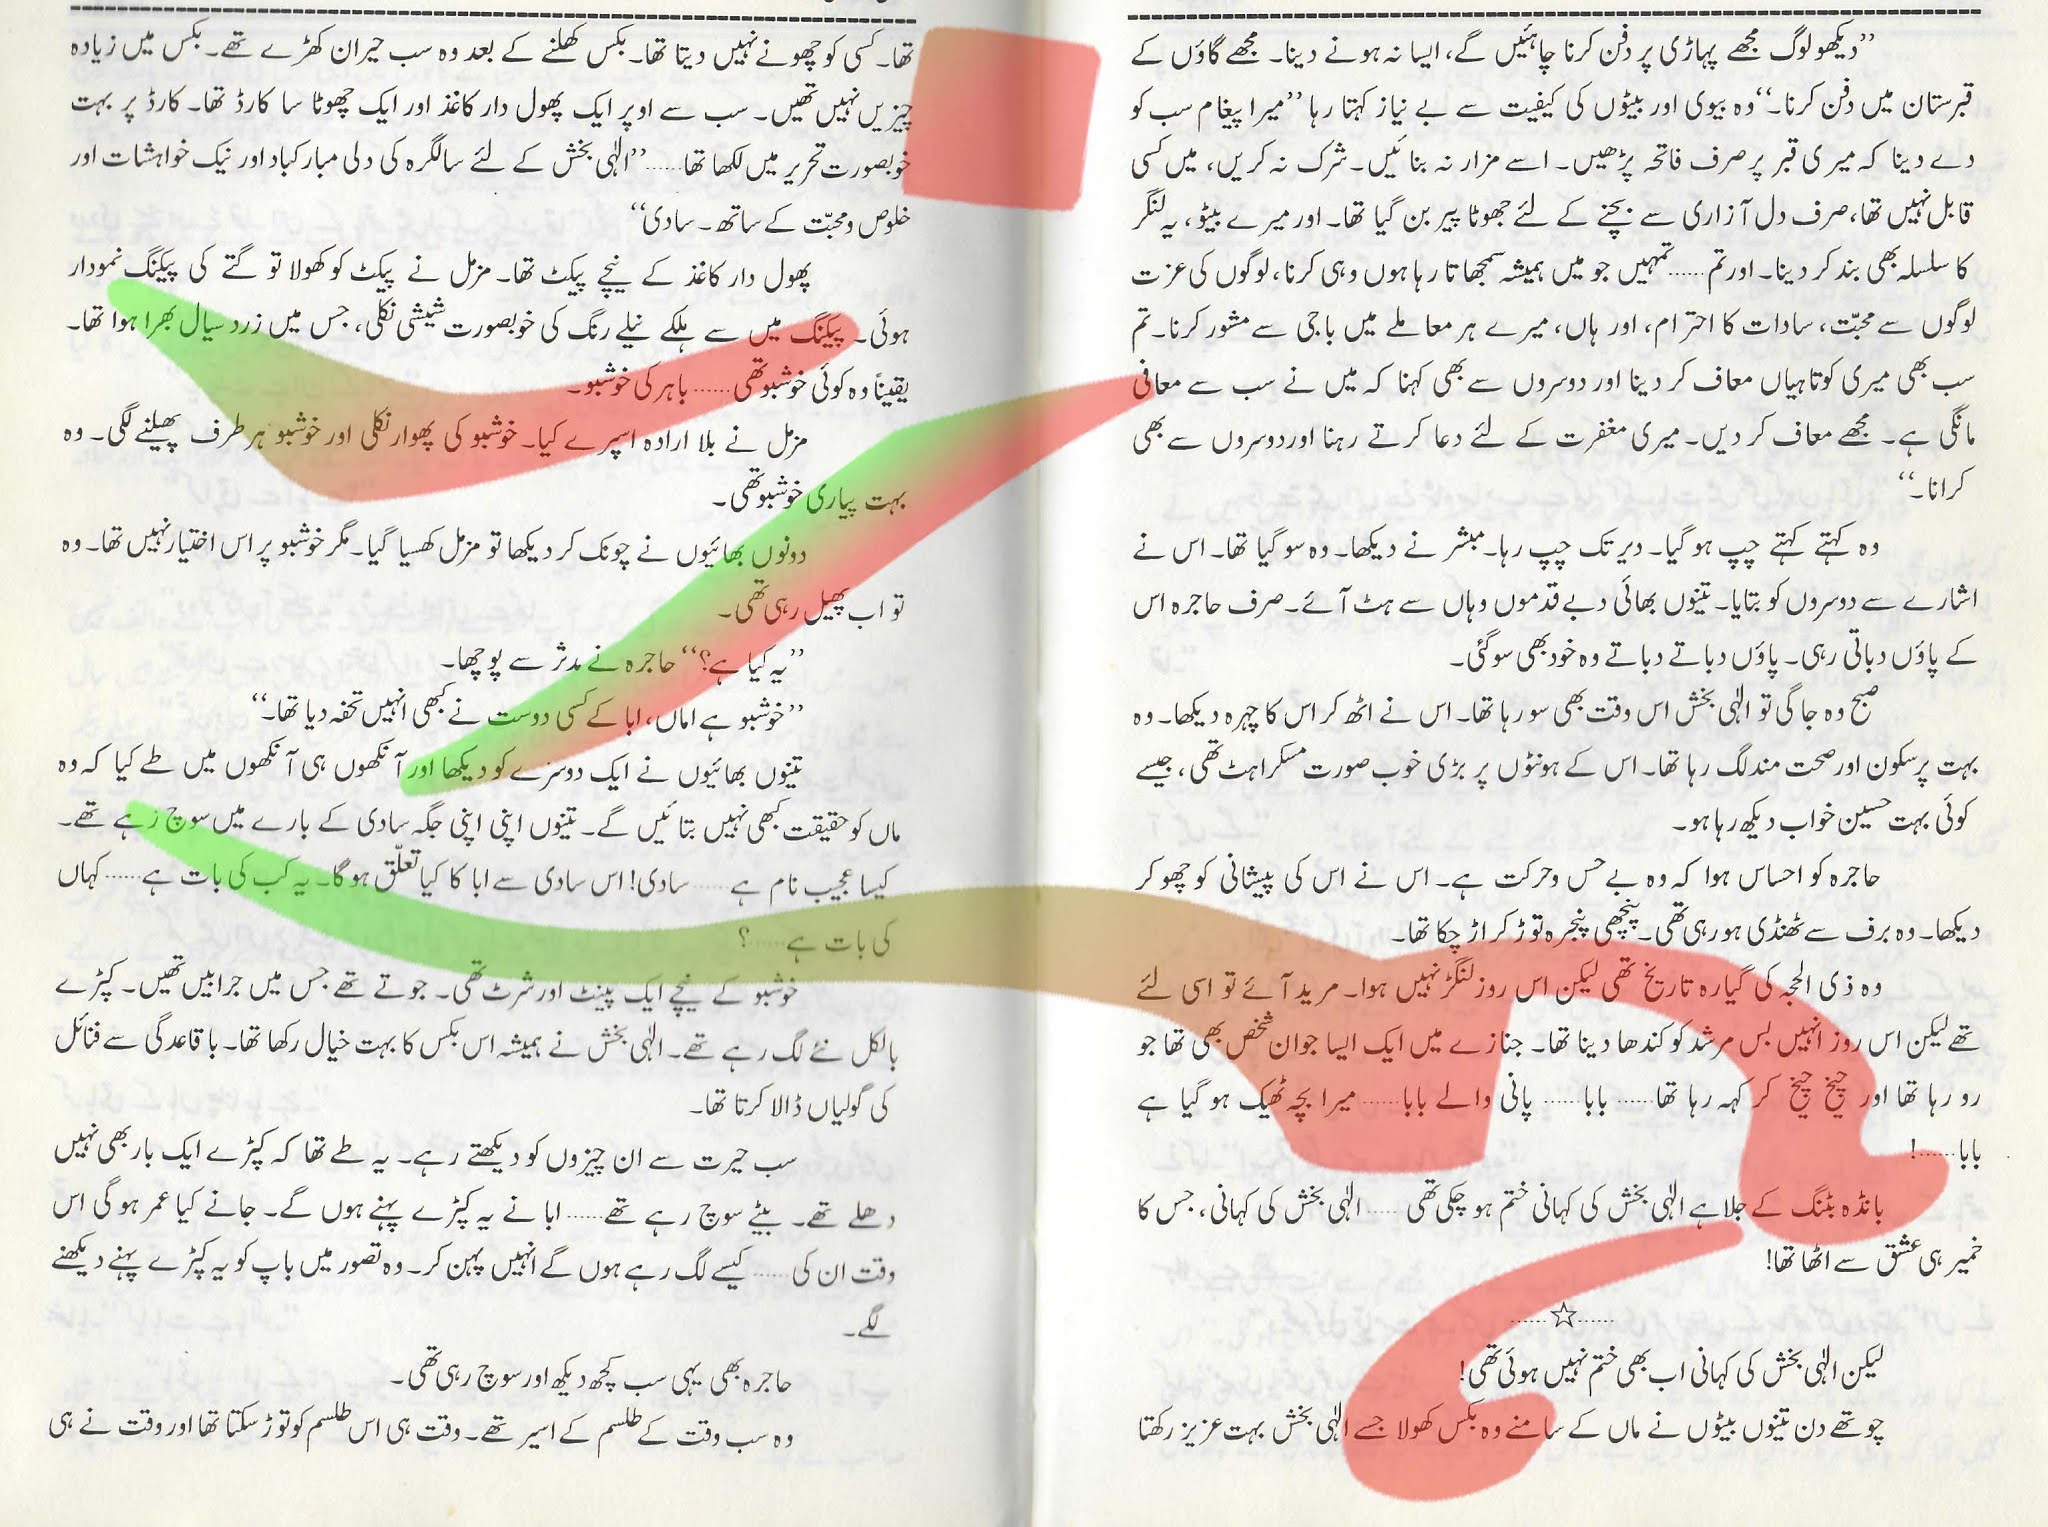 ”دیکھو لوگ مجھے پہاڑی پر دفن کرنا چاہئیں گے، ایسا نہ ہونے دینا۔ مجھے گاؤں کے
قبرستان میں دفن کرنا۔“ وہ بیوی اور بیٹوں کی کیفیت سے بے نیاز کہتا رہا ”میرا پیغام سب کو
دے دینا کہ میری قبر پر صرف فاتحہ پڑھیں۔ اسے مزار نہ بنائیں۔ شرک نہ کریں، میں کسی
قابل نہیں تھا، صرف دل آزاری سے بچنے کے لئے جھوٹا پیر بن گیا تھا۔ اور میرے بیٹو، یہ لنگر
کا سلسلہ بھی بند کر دینا۔ اور تم...... تمہیں جو میں ہمیشہ سمجھاتا رہا ہوں وہی کرنا، لوگوں کی عزت
لوگوں سے محبّت، سادات کا احترام، اور ہاں، میرے ہر معاملے میں باجی سے مشور کرنا۔ تم
سب بھی میری کوتاہیاں معاف کر دینا اور دوسروں سے بھی کہنا کہ میں نے سب سے معافی
مانگی ہے۔ مجھے معاف کر دیں۔ میری مغفرت کے لئے دعا کرتے رہنا اور دوسروں سے بھی
کرانا۔“
وہ کہتے کہتے چپ ہو گیا۔ دیر تک چپ رہا۔ مبشر نے دیکھا۔ وہ سو گیا تھا۔ اس نے
اشارے سے دوسروں کو بتایا۔ تینوں بھائی دبے قدموں وہاں سے ہٹ آئے۔ صرف حاجرہ اس
کے پاؤں دباتی رہی۔ پاؤں دباتے دباتے وہ خود بھی سو گئی۔
صبح وہ جاگی تو الٰہی بخش اس وقت بھی سو رہا تھا۔ اس نے اٹھ کر اس کا چہرہ دیکھا۔ وہ
بہت پرسکون اور صحت مند لگ رہا تھا۔ اس کے ہونٹوں پر بڑی خوب صورت مسکراہٹ تھی، جیسے
کوئی بہت حسین خواب دیکھ رہا ہو۔
حاجرہ کو احساس ہوا کہ وہ بے حس وحرکت ہے۔ اس نے اس کی پیشانی کو چھو کر
دیکھا۔ وہ برف سے ٹھنڈی ہو رہی تھی۔ پنچھی پنجرہ توڑ کر اڑ چکا تھا۔
وہ ذی الحجہ کی گیارہ تاریخ تھی لیکن اس روز لنگر نہیں ہوا۔ مرید آئے تو اسی لئے
تھے لیکن اس روز انہیں بس مرشد کو کندھا دینا تھا۔ جنازے میں ایک ایسا جوان شخص بھی تھا جو
رو رہا تھا اور چیخ چیخ کر کہہ رہا تھا...... بابا...... پانی والے بابا...... میرا بچہ ٹھیک ہو گیا ہے
بابا......!
بانڈہ بٹنگ کے جلاہے الٰہی بخش کی کہانی ختم ہو چکی تھی...... الٰہی بخش کی کہانی، جس کا
خمیر ہی عشق سے اٹھا تھا!
......☆......
لیکن الٰہی بخش کی کہانی اب بھی ختم نہیں ہوئی تھی!
چوتھے دن تینوں بیٹوں نے ماں کے سامنے وہ بکس کھولا جسے الٰہی بخش بہت عزیز رکھتا
تھا۔ کسی کو چھونے نہیں دیتا تھا۔ بکس کھلنے کے بعد وہ سب حیران کھڑے تھے۔ بکس میں زیادہ
چیزیں نہیں تھیں۔ سب سے اوپر ایک پھول دار کاغذ اور ایک چھوٹا سا کارڈ تھا۔ کارڈ پر بہت
خوبصورت تحریر میں لکھا تھا...... ”الٰہی بخش کے لئے سالگرہ کی دلی مبارکباد اور نیک خواہشات اور
خلوص ومحبّت کے ساتھ۔ سادی“
پھول دار کاغذ کے نیچے پیکٹ تھا۔ مزمل نے پیکٹ کو کھولا تو گتے کی پیکنگ نمودار
ہوئی۔ پیکنگ میں سے ہلکے نیلے رنگ کی خوبصورت شیشی نکلی، جس میں زرد سیال بھرا ہوا تھا۔
یقیناً وہ کوئی خوشبو تھی...... باہر کی خوشبو۔
مزمل نے بلا ارادہ اسپرے کیا۔ خوشبو کی پھوار نکلی اور خوشبو ہر طرف پھیلنے لگی۔ وہ
بہت پیاری خوشبو تھی۔
دونوں بھائیوں نے چونک کر دیکھا تو مزمل کھسیا گیا۔ مگر خوشبو پر اس اختیار نہیں تھا۔ وہ
تو اب پھیل رہی تھی۔
”یہ کیا ہے؟“ حاجرہ نے مدثر سے پوچھا۔
”خوشبو ہے اماں، ابا کے کسی دوست نے کبھی انہیں تحفہ دیا تھا۔“
تینوں بھائیوں نے ایک دوسرے کو دیکھا اور آنکھوں ہی آنکھوں میں طے کیا کہ وہ
ماں کو حقیقت کبھی نہیں بتائیں گے۔ تینوں اپنی اپنی جگہ سادی کے بارے میں سوچ رہے تھے۔
کیسا عجیب نام ہے...... سادی! اس سادی سے ابا کا کیا تعلّق ہوگا۔ یہ کب کی بات ہے...... کہاں
کی بات ہے......؟
خوشبو کے نیچے ایک پینٹ اور شرٹ تھی۔ جوتے تھے جس میں جرابیں تھیں۔ کپڑے
بالکل نئے لگ رہے تھے۔ الٰہی بخش نے ہمیشہ اس بکس کا بہت خیال رکھا تھا۔ باقاعدگی سے فنائل
کی گولیاں ڈالا کرتا تھا۔
سب حیرت سے ان چیزوں کو دیکھتے رہے۔ یہ طے تھا کہ کپڑے ایک بار بھی نہیں
دھلے تھے۔ بیٹے سوچ رہے تھے...... ابا نے یہ کپڑے پہنے ہوں گے۔ جانے کیا عمر ہو گی اس
وقت ان کی...... کیسے لگ رہے ہوں گے انہیں پہن کر۔ وہ تصور میں باپ کو یہ کپڑے پہنے دیکھنے
لگے۔
حاجرہ بھی یہی سب کچھ دیکھ اور سوچ رہی تھی۔
وہ سب وقت کے طلسم کے اسیر تھے۔ وقت ہی اس طلسم کو توڑ سکتا تھا اور وقت نے ہی